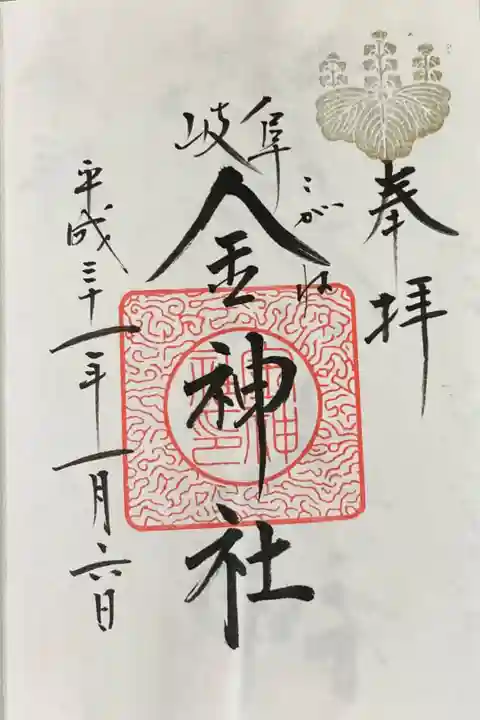 奉拝
岐阜
こがね
金神社
平成三十一年一月六日